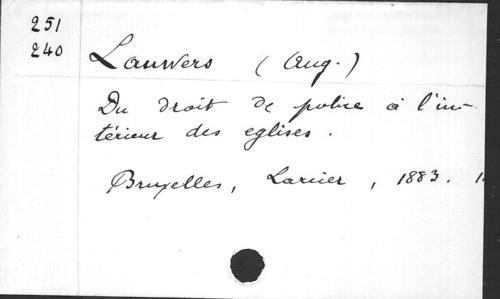 251
240
Lauwers (Aug.)
Du droit de police à l'in-
térieur des eglises.
Bruxelles, Larcier, 1883.